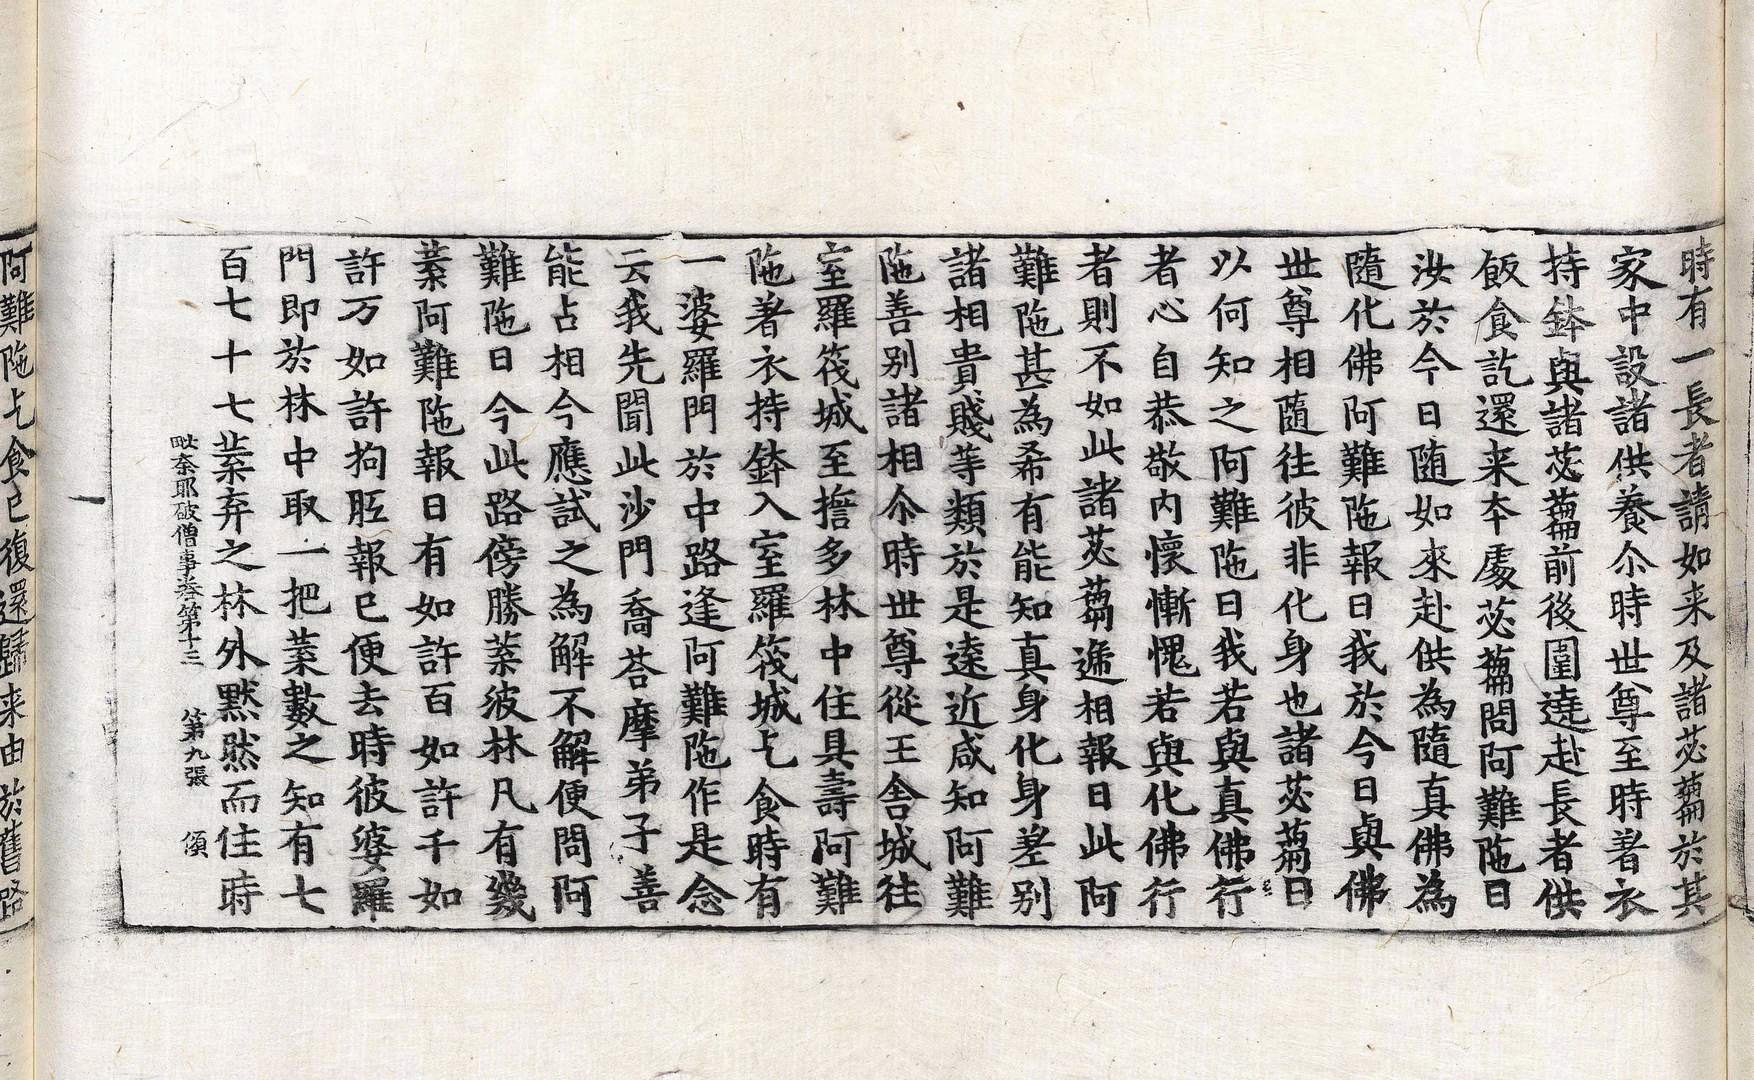 時有一長者請如来及諸苾蒭於其
家中設諸供養尒時世尊至時著衣
持鉢與諸苾蒭前後圍遶赴長者供
飯食訖還来夲處苾蒭問阿難陁曰
汝於今日随如來赴供為隨真佛為
隨化佛阿難陁報曰我於今日與佛
世尊相隨往彼非化身也諸苾蒭曰
以何知之阿難陁曰我若與真佛行
者心自恭敬内懷慚愧若與化佛行
者則不如此諸苾蒭遞相報曰此阿
難陁甚為希有能知真身化身差別
諸相貴賤等類於是遠近咸知阿難
陁善別諸相尒時世尊從王舍城往
室羅筏城至擔多林中住具壽阿難
陁著衣持鉢入室羅筏城乞食時有
一婆羅門於中路逢阿難陁作是念
云我先聞此沙門喬荅摩弟子善
能占相今應試之為解不解便問阿
難陁曰今此路傍勝葉彼林凡有幾
葉阿難陁報曰有如許百如許千如
許万如許拘胝報已便去時彼婆羅
門即於林中取一把葉數之知有七
百七十七葉弃之林外默然而住時
毗奈耶破僧事卷第十三 第九張 傾
阿難陁乞食已復還歸来由於舊路